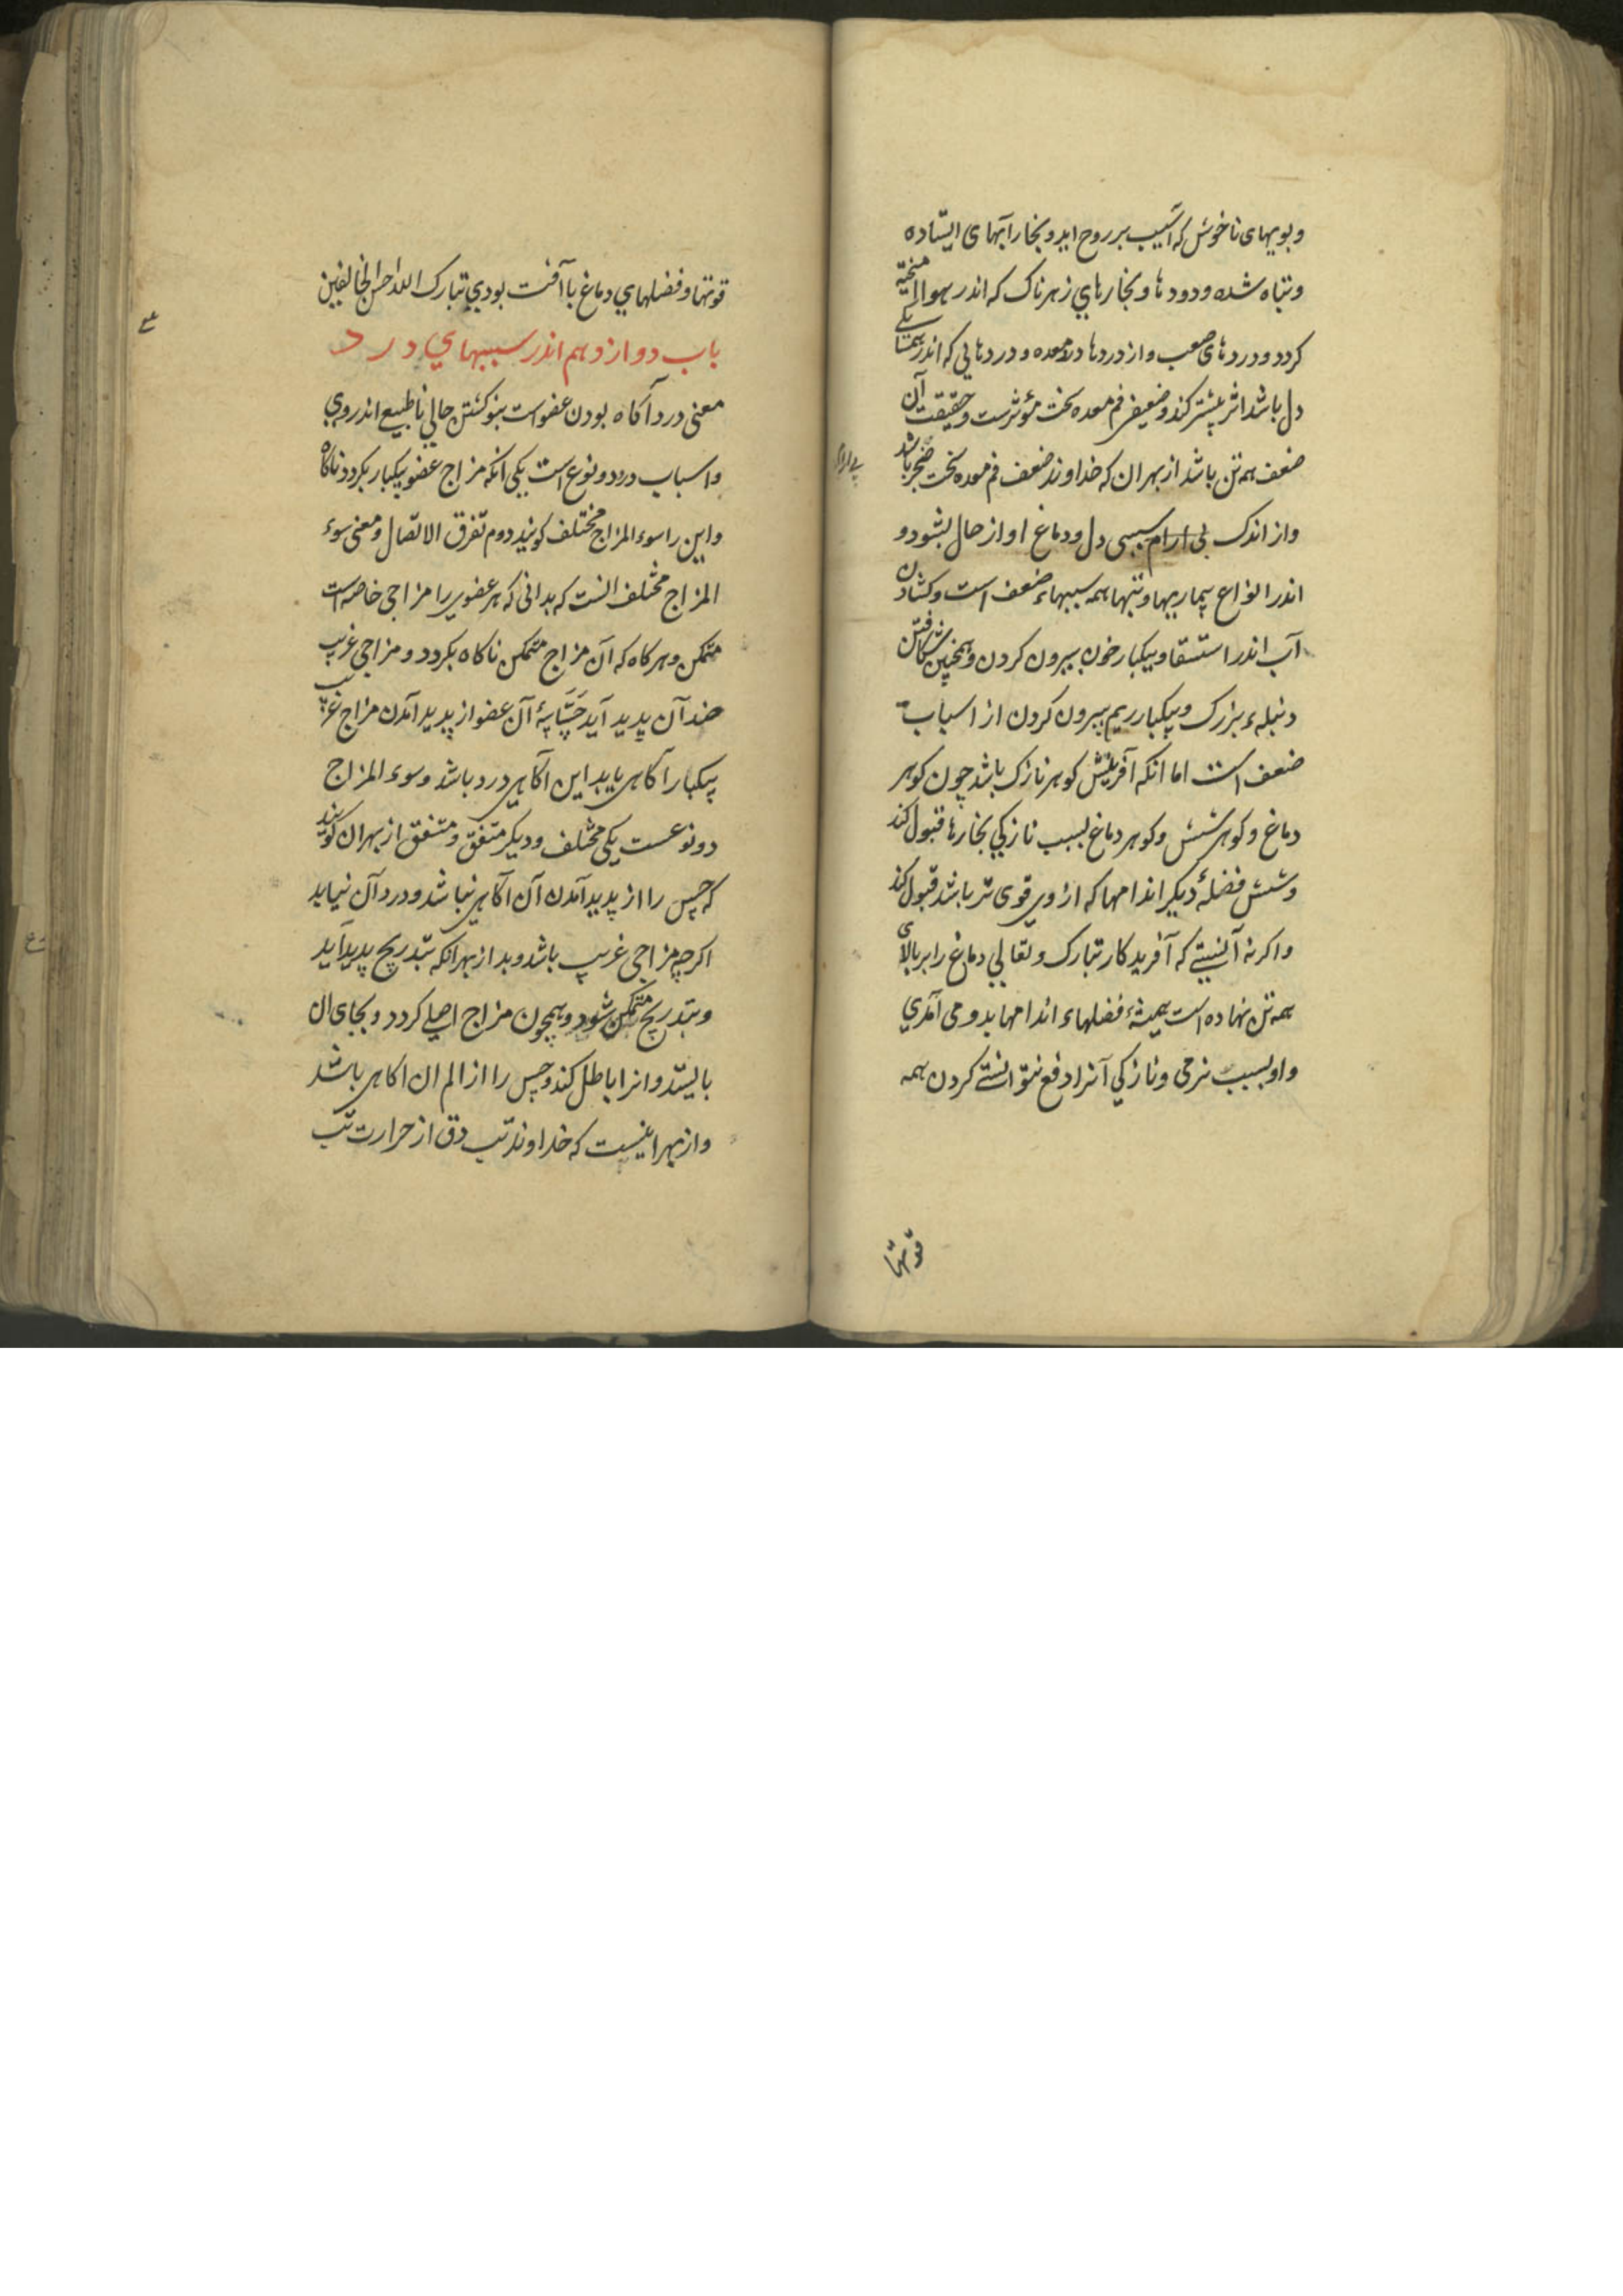 وبویهای ناخوش که آسیب بر روح آید و بخار آبهای ایستاده
وتباه شده ودودها و بخارهای زهرناک که اندر هوا امیخته
کردد ودردهای صعب واز دردها درد معده و دردهایی که اندر همسایکی
دل باشد اثر بیشتر کند وضعیفی فم معده سخت مؤثرست وحقیقت آن
ضعف همه تن باشد از بهر ان که خداوند ضعف فم معده سخت ضجر باشد
واز اندک بی ارام سببی دل ودماغ او از حال بشود و
اندر انواع بیماریها وتبها همه سببهاء ضعف است وکشادن
آب اندر استسقا وبیکبار خون بیرون کردن وهمچنین شکافتن
دنبلهء بزرک وبیکبار ریم بیرون کردن از اسباب
ضعف است اما انکه آفرینش کوهر نازک باشد چون کوهر
دماغ وکوهر شش وکوهر دماغ بسبب نازکي بخارها قبول کند
وشش فضلهٔ دیکر اندامها که از وي قوی تر باشد قبول کند
واکرنه آنستي که آفریدکار تبارک وتعالي دماغ را بر بالای
همه تن نهاده است همیشه فضلهاء اندامها بدو می آمدي
واو بسبب نرمی ونازکي آنرا دفع نتوانستي کردن همه
قوتها
قوتها وفضلهاي دماغ با آفت بودي تبارک الله احسن الخالقین
باب دوازدهم اندر سببهاي درد
معنی درد آکاه بودن عضو است بنو کشتن حالي ناطبیع اندر وي
واسباب درد دو نوع است یکی انکه مزاج عضو بیکبار بکردد ناکاه
واین را سوء المزاج مختلف کویند دوم تفرق الاتصال ومعنی سوء
المزاج مختلف انست که بدانی که هر عضوي را مزاجی خاصه است
متمکن وهرکاه که آن مزاج متمکن ناکاه بکردد ومزاجی غریب
ضد آن پدید آید حسّاسهٔ آن عضو از پدید آمدن مزاج غریب
بیکبار آکاهی یابد این آکاهی درد باشد وسوء المزاج
دو نوعست یکی مختلف ودیکر متفق ومتفق از بهر ان کویند
که حس را از پدید آمدن آن آکاهی نباشد ودرد آن نیابد
اکرچه مزاجی غریب باشد وبد از بهر انکه بتدریج پدید آید
وبتدریج متمکن شود وهمچون مزاج اصلي کردد وبجای ان
بایستد وانرا باطل کند وحس را از الم ان اکاهی باشد
واز بهر اینست که خداوند تب دق از حرارت تب